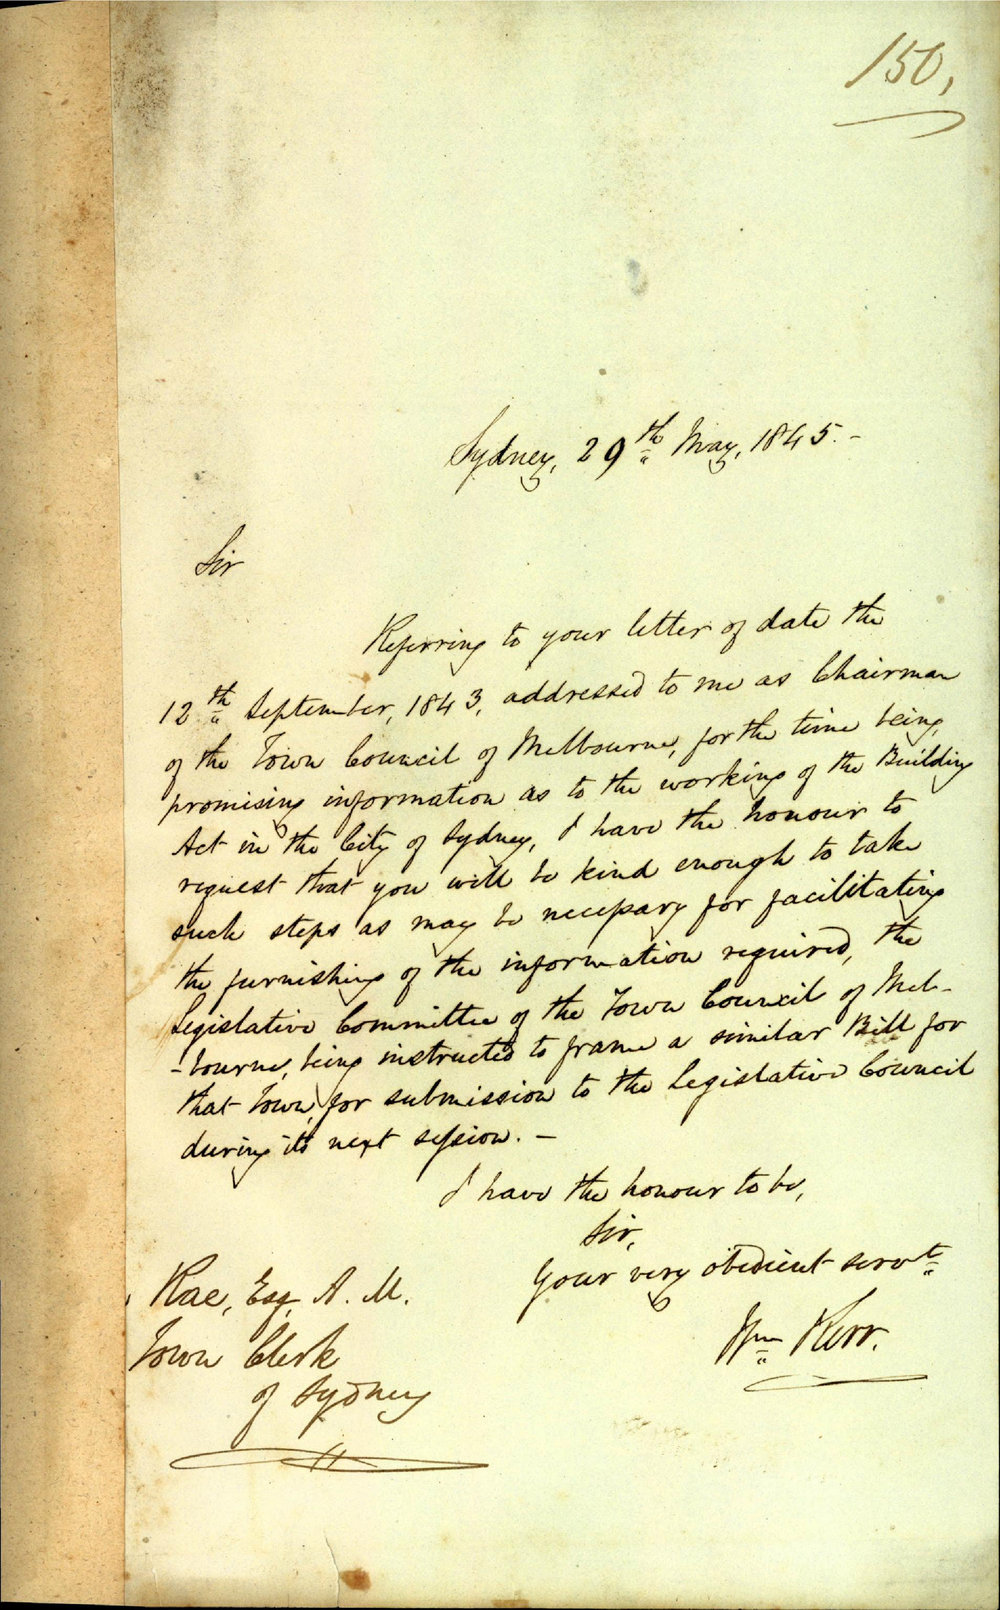 150,
Sydney, 29th May, 1845.-
Sir
Referring to your letter of date the
12th September, 1843, addressed to me as Chairman
of the Town Council of Melbourne, for the time being,
promising information as to the working of the Building
Act in the City of Sydney, I have the honour to
request that you will be kind enough to take
such steps as may be necessary for facilitating
the furnishing of the information required, the
Legislative Committee of the Town Council of Mel-
-bourne, being instructed to frame a similar Bill for
that Town, for submission to the Legislative Council
during its next session. -
I have the honour to be,
Sir,
Your very obedient servt
Wm Kerr.
Rae, Esq, A. M.
Town Clerk
of Sydney